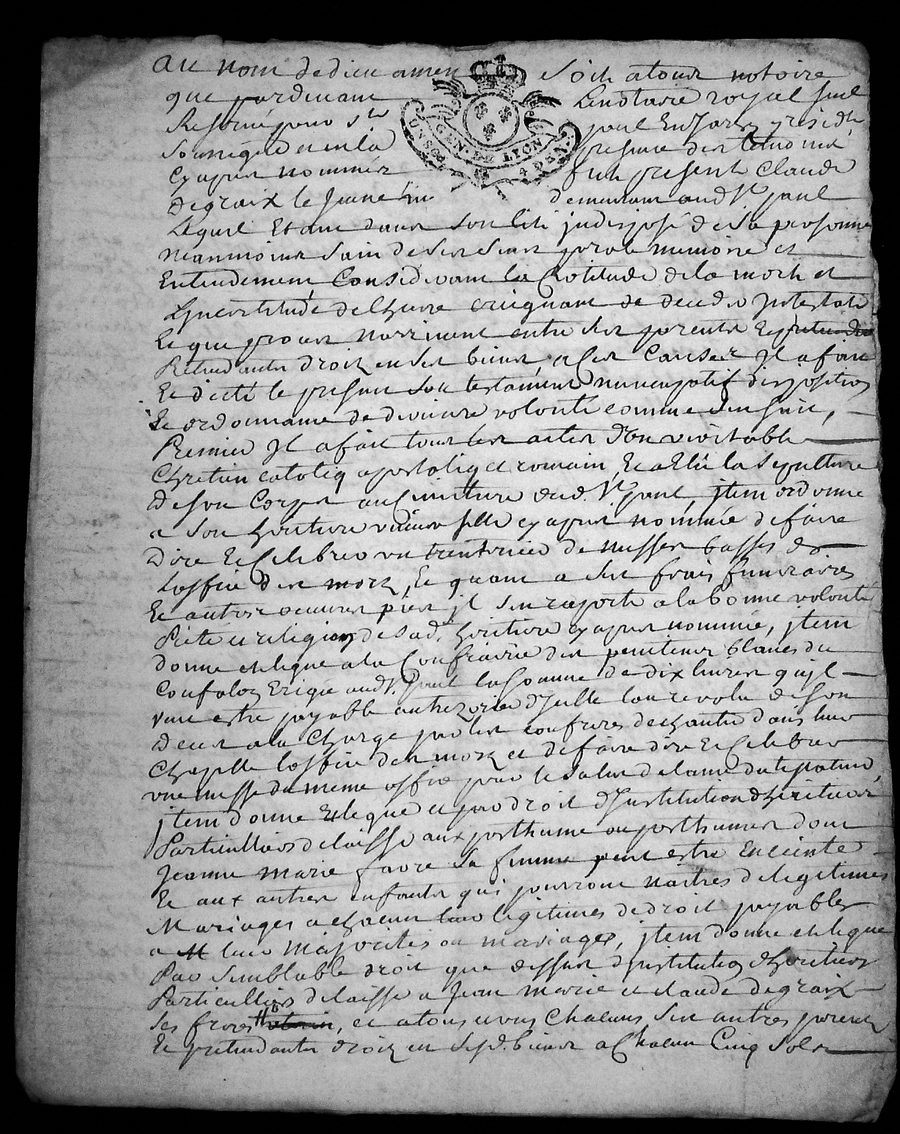 au nom de dieu amen soit a tous notoire
que pardevant Le notaire royal seul
Reservé pour St paul En Jarez y residt
soussigné et en la presence des temoins
cy apres nommés fut present Claude
degraix le jeune demeurant aud St paul
Lequel Etant dans son lit indisposé de sa personne
neanmoins sain de ses sens parole memoire et
Entendement Considerant la Certitude de la mort et
Lincertitude de lheure craignant de deceder Intestat
Et que proces narrivent entre ses parents Et
Pretendants droit en ses biens a ces Causes Il a fait
Et dicté le present son testament nuncupatif disposition
Et ordonnance de derniere volonté comme sensuit,
Premier Il a fait tous les actes d'un veritable
Chretien catoliq apostoliq et romain, Et a Elû la sepulture
de son Corps au cimitiere dud. St paul, jtem ordonne
a son heritiere universelle cy apres nommée de faire
dire Et celebrer un trentenier de messes basses de
Loffice des morts, Et quant a ses frais funeraires
Et autres oeuvres pies jl sen raporte a la bonne volonté
Pieté et religion de sad. heritiere cy apres nommée, jtem
donne et legue a la Confrairie des penitens blancs du
Confalon Erigée aud St. Paul la somme de dix livres qu'jl
veut estre payable au tresorier d'jcelle lan revolu de son
deces a la Charge par les confreres de chanter dans leur
Chapelle loffice des morts et de faire dire Et celebrer
une messe du meme office pour le salut de lame du testateur,
jtem donne Et legue et par droit d'Institution d'heritiers
Particulliers delaisse aux posthume ou posthumes dont
Jeanne marie favre sa femme peut estre Enceinte
Et aux autres enfants qui pourront naitres de legitimes
Mariages a chacun leur legitimes de droit payables
a leur majorités ou mariages, jtem donne et legue
Par semblable droit que dessus d'institution d'heritiers
Particulliers delaisse a Jean marie et claude degraix
ses freres, et a tous et uns Chacuns ses autres parents
Et pretendants droit en sesd. biens a Chacun Cinq sols
UN SOL GEN. DE LYON 4 DEN.